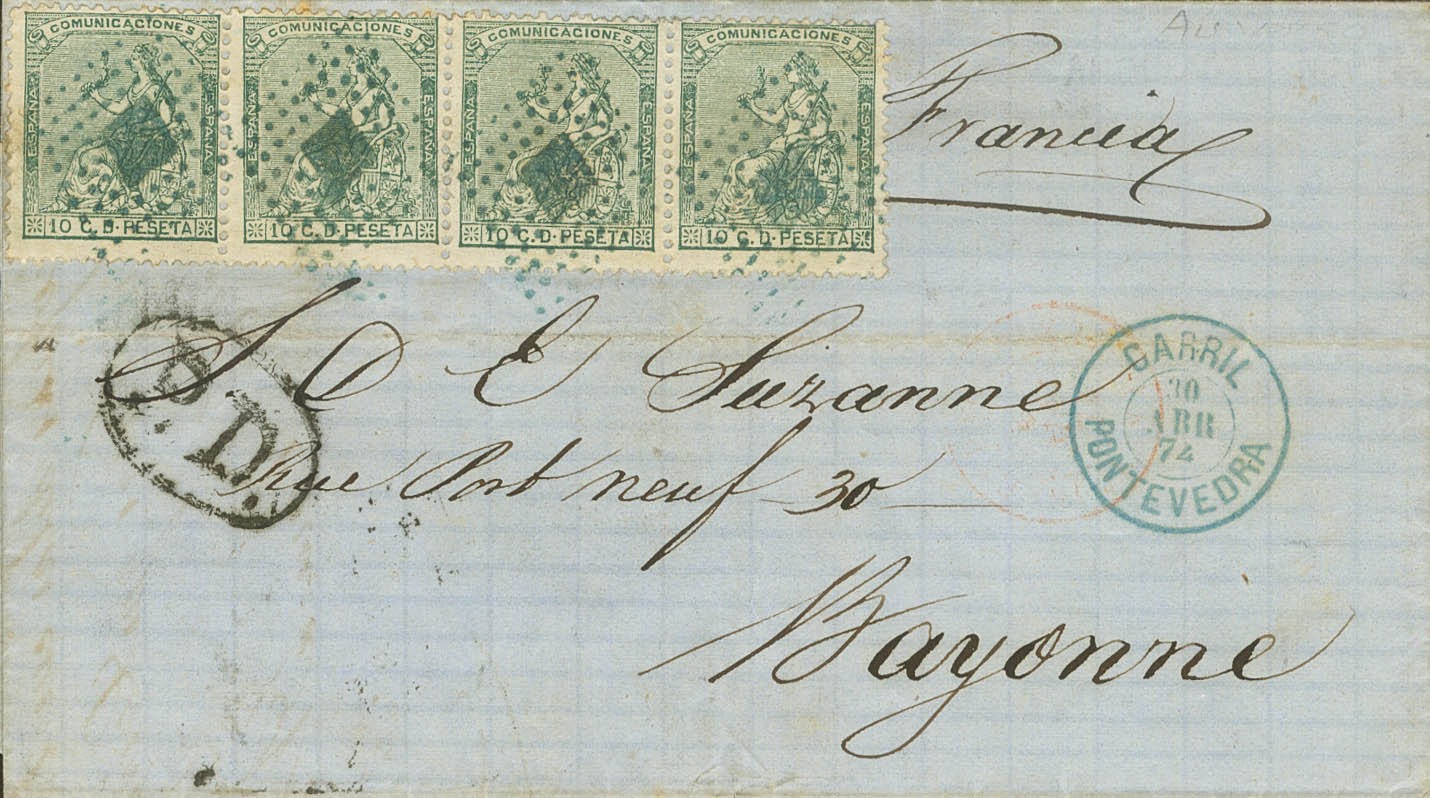 COMUNICACIONES COMUNICACIONES COMUNICACIONES COMUNICACIONES
ESPAÑA ESPAÑA ESPAÑA ESPAÑA ESPAÑA ESPAÑA ESPAÑA ESPAÑA
10 C. D. PESETA 10 C. D. PESETA 10 C. D. PESETA 10 C. D. PESETA
Francia
S. D E Suzanne
Rue Port neuf 30
Bayonne
P. D.
CARRIL
30
ABR
74
PONTEVEDRA